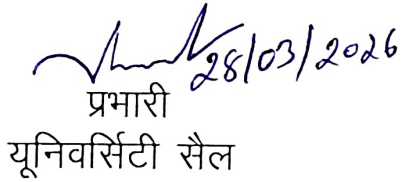 28/03/2026
प्रभारी
यूनिवर्सिटी सैल